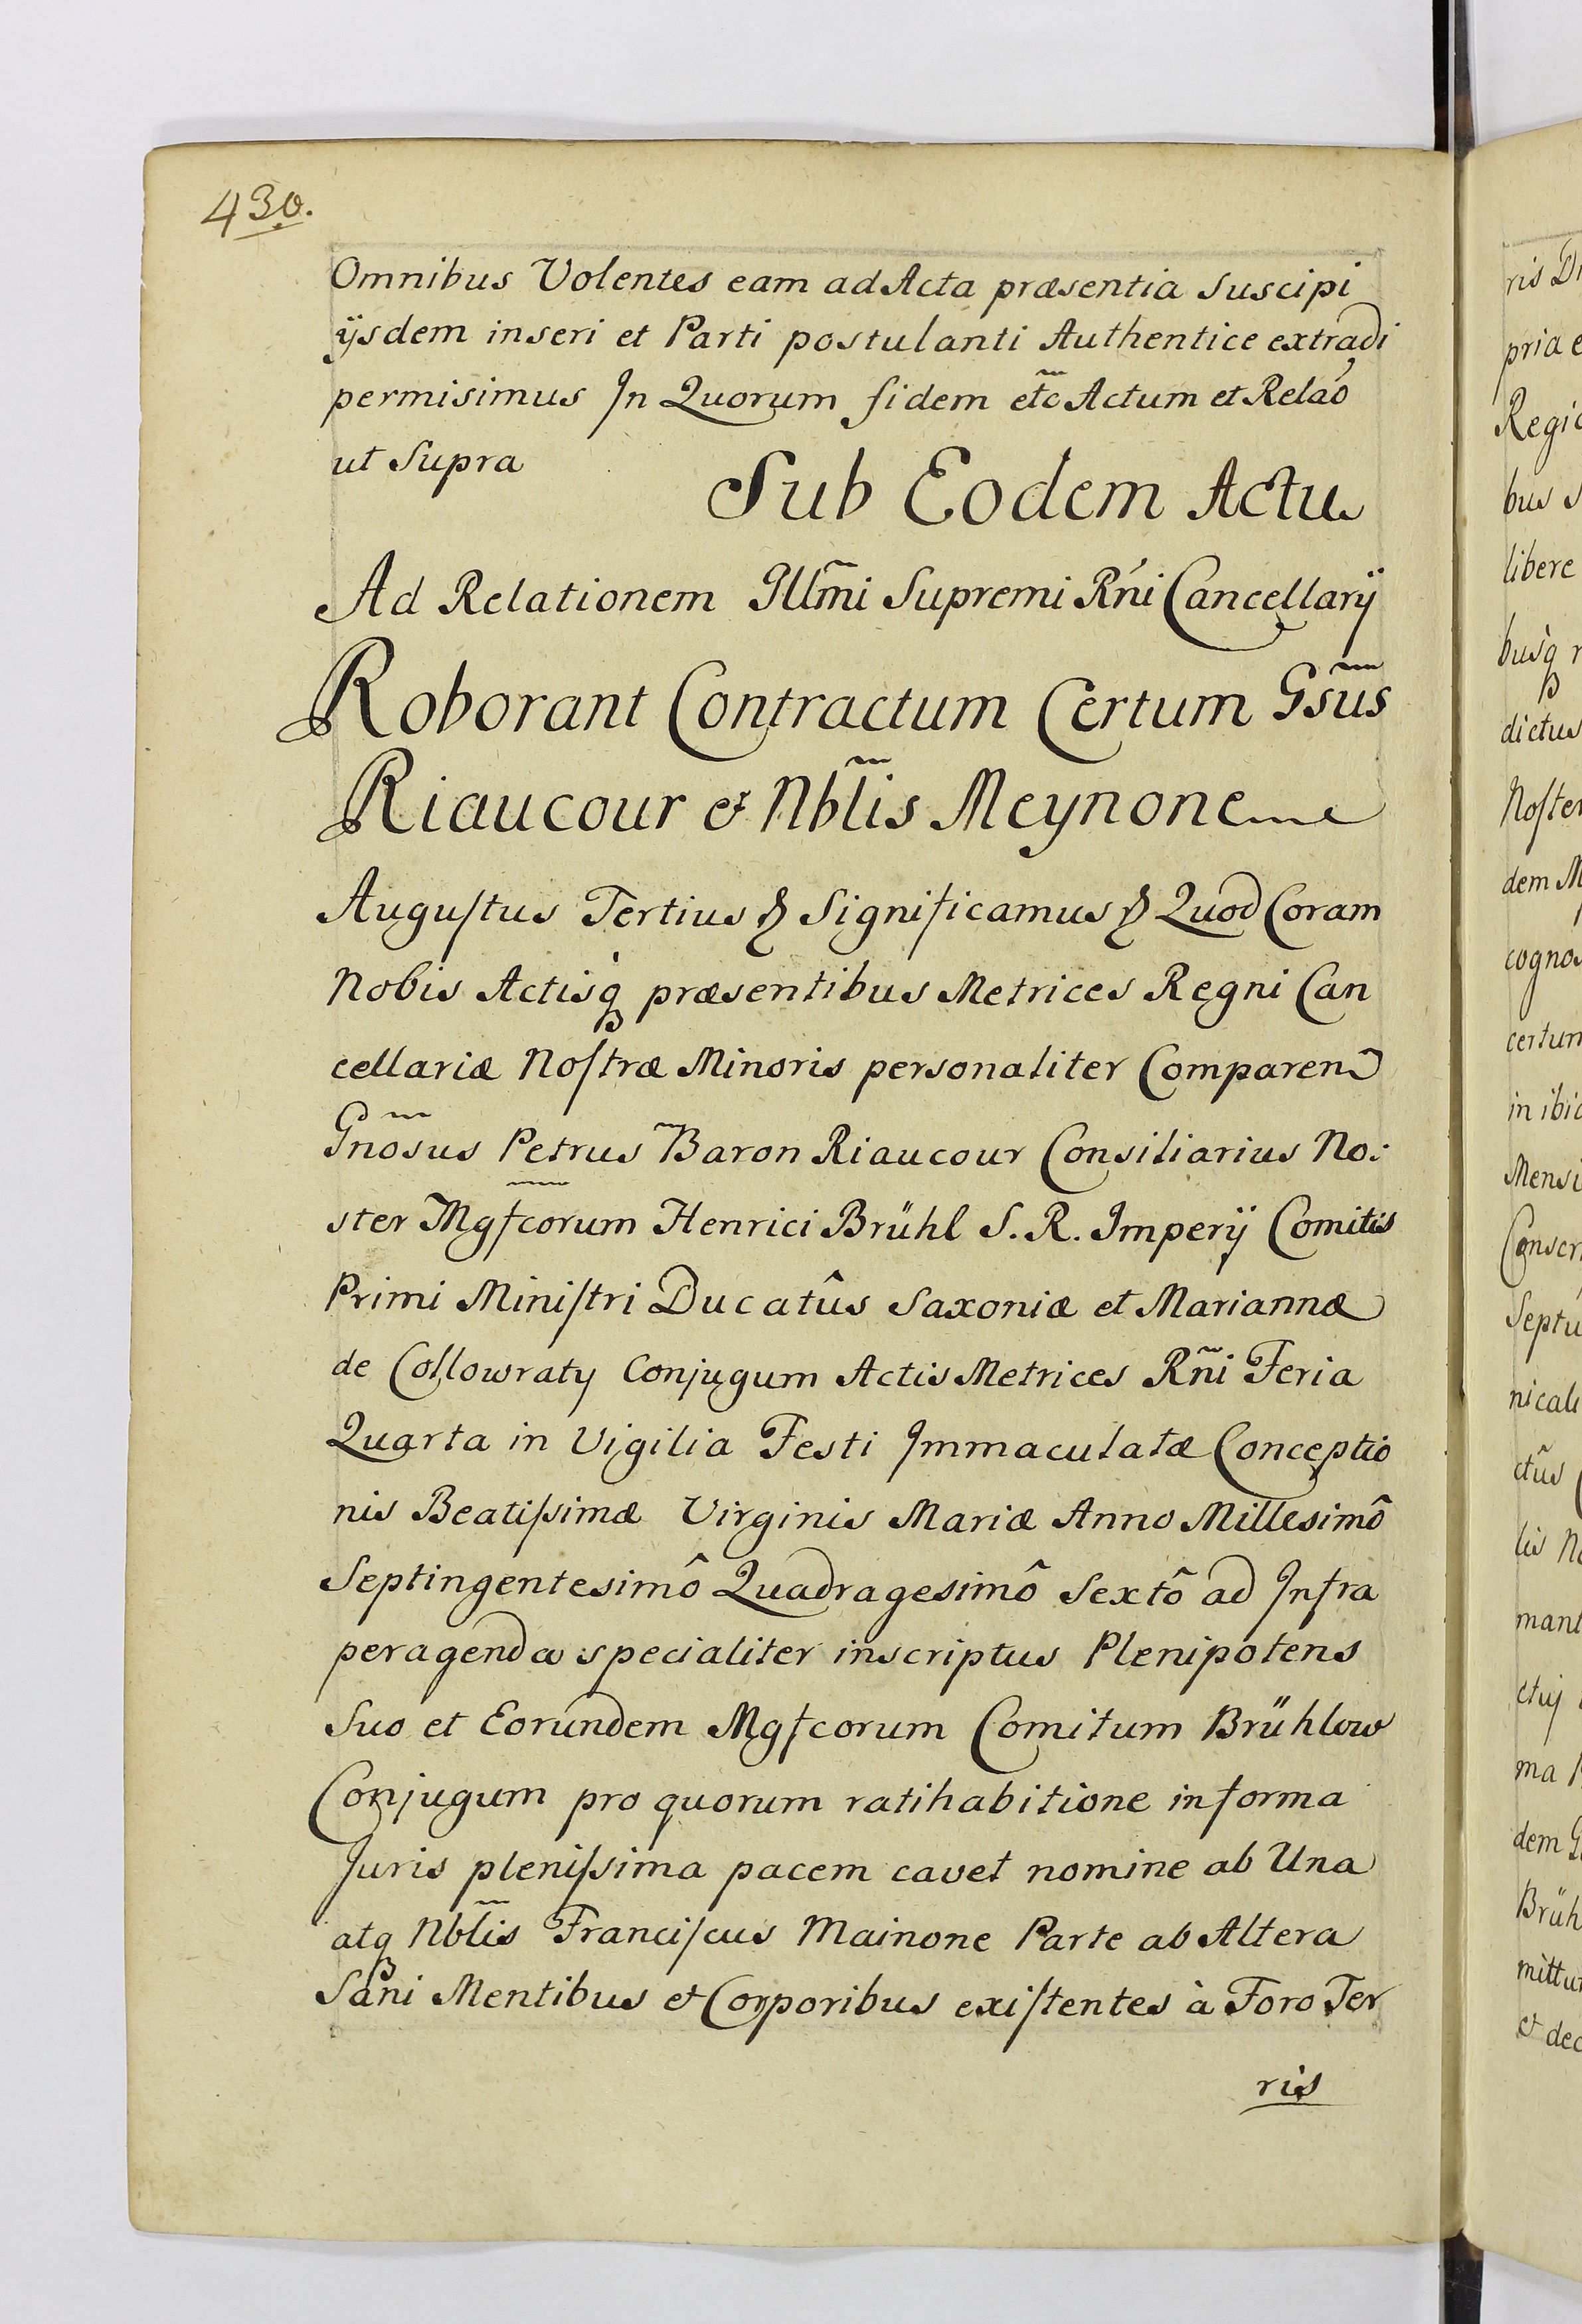 430.
Omnibus Volentes eam ad Acta præsentia Suscipi
ijsdem inseri et Parti postulanti Authentice extradi
permisimus In Quorum fidem etc̃ Actum et Relaõ
ut Supra
Sub Eodem Actu
Ad Relationem Illm̃i Supremi Rńi Cancellarij
Roborant Contractum Certum Gs̃us
Riaucour et Nbl̃is Meynone
Augustus Tertius & Significamus & Quod Coram
Nobis Actisq præsentibus Metrices Regni Can
cellariæ Nostræ Minoris personaliter Comparen
Gñosus Petrus Baron Riaucour Consiliarius No:
ster Mgfcorum Henrici Brühl S. R. Imperij Comitis
Primi Ministri Ducatûs Saxoniæ et Mariannæ
de Collowraty Conjugum Actis Metrices Rñi Feria
Quarta in Vigilia Festi Immaculatæ Conceptio
nis Beatissimæ Virginis Mariæ Anno Millesimô
Septingentesimô Quadragesimô Sextô ad Infra
peragenda specialiter inscriptus Plenipotens
Suo et Eorundem Mgfcorum Comitum Brühlow
Conjugum pro quorum ratihabitione in forma
Juris plenissima pacem cavet nomine ab Una
atq Nbl̃is Franciscus Mainone Parte ab Altera
Sani Mentibus et Corporibus existentes à Foro Ter
ris
ris
pria
bus
libere
busq
dictus
Noster
dem
in
dem
et